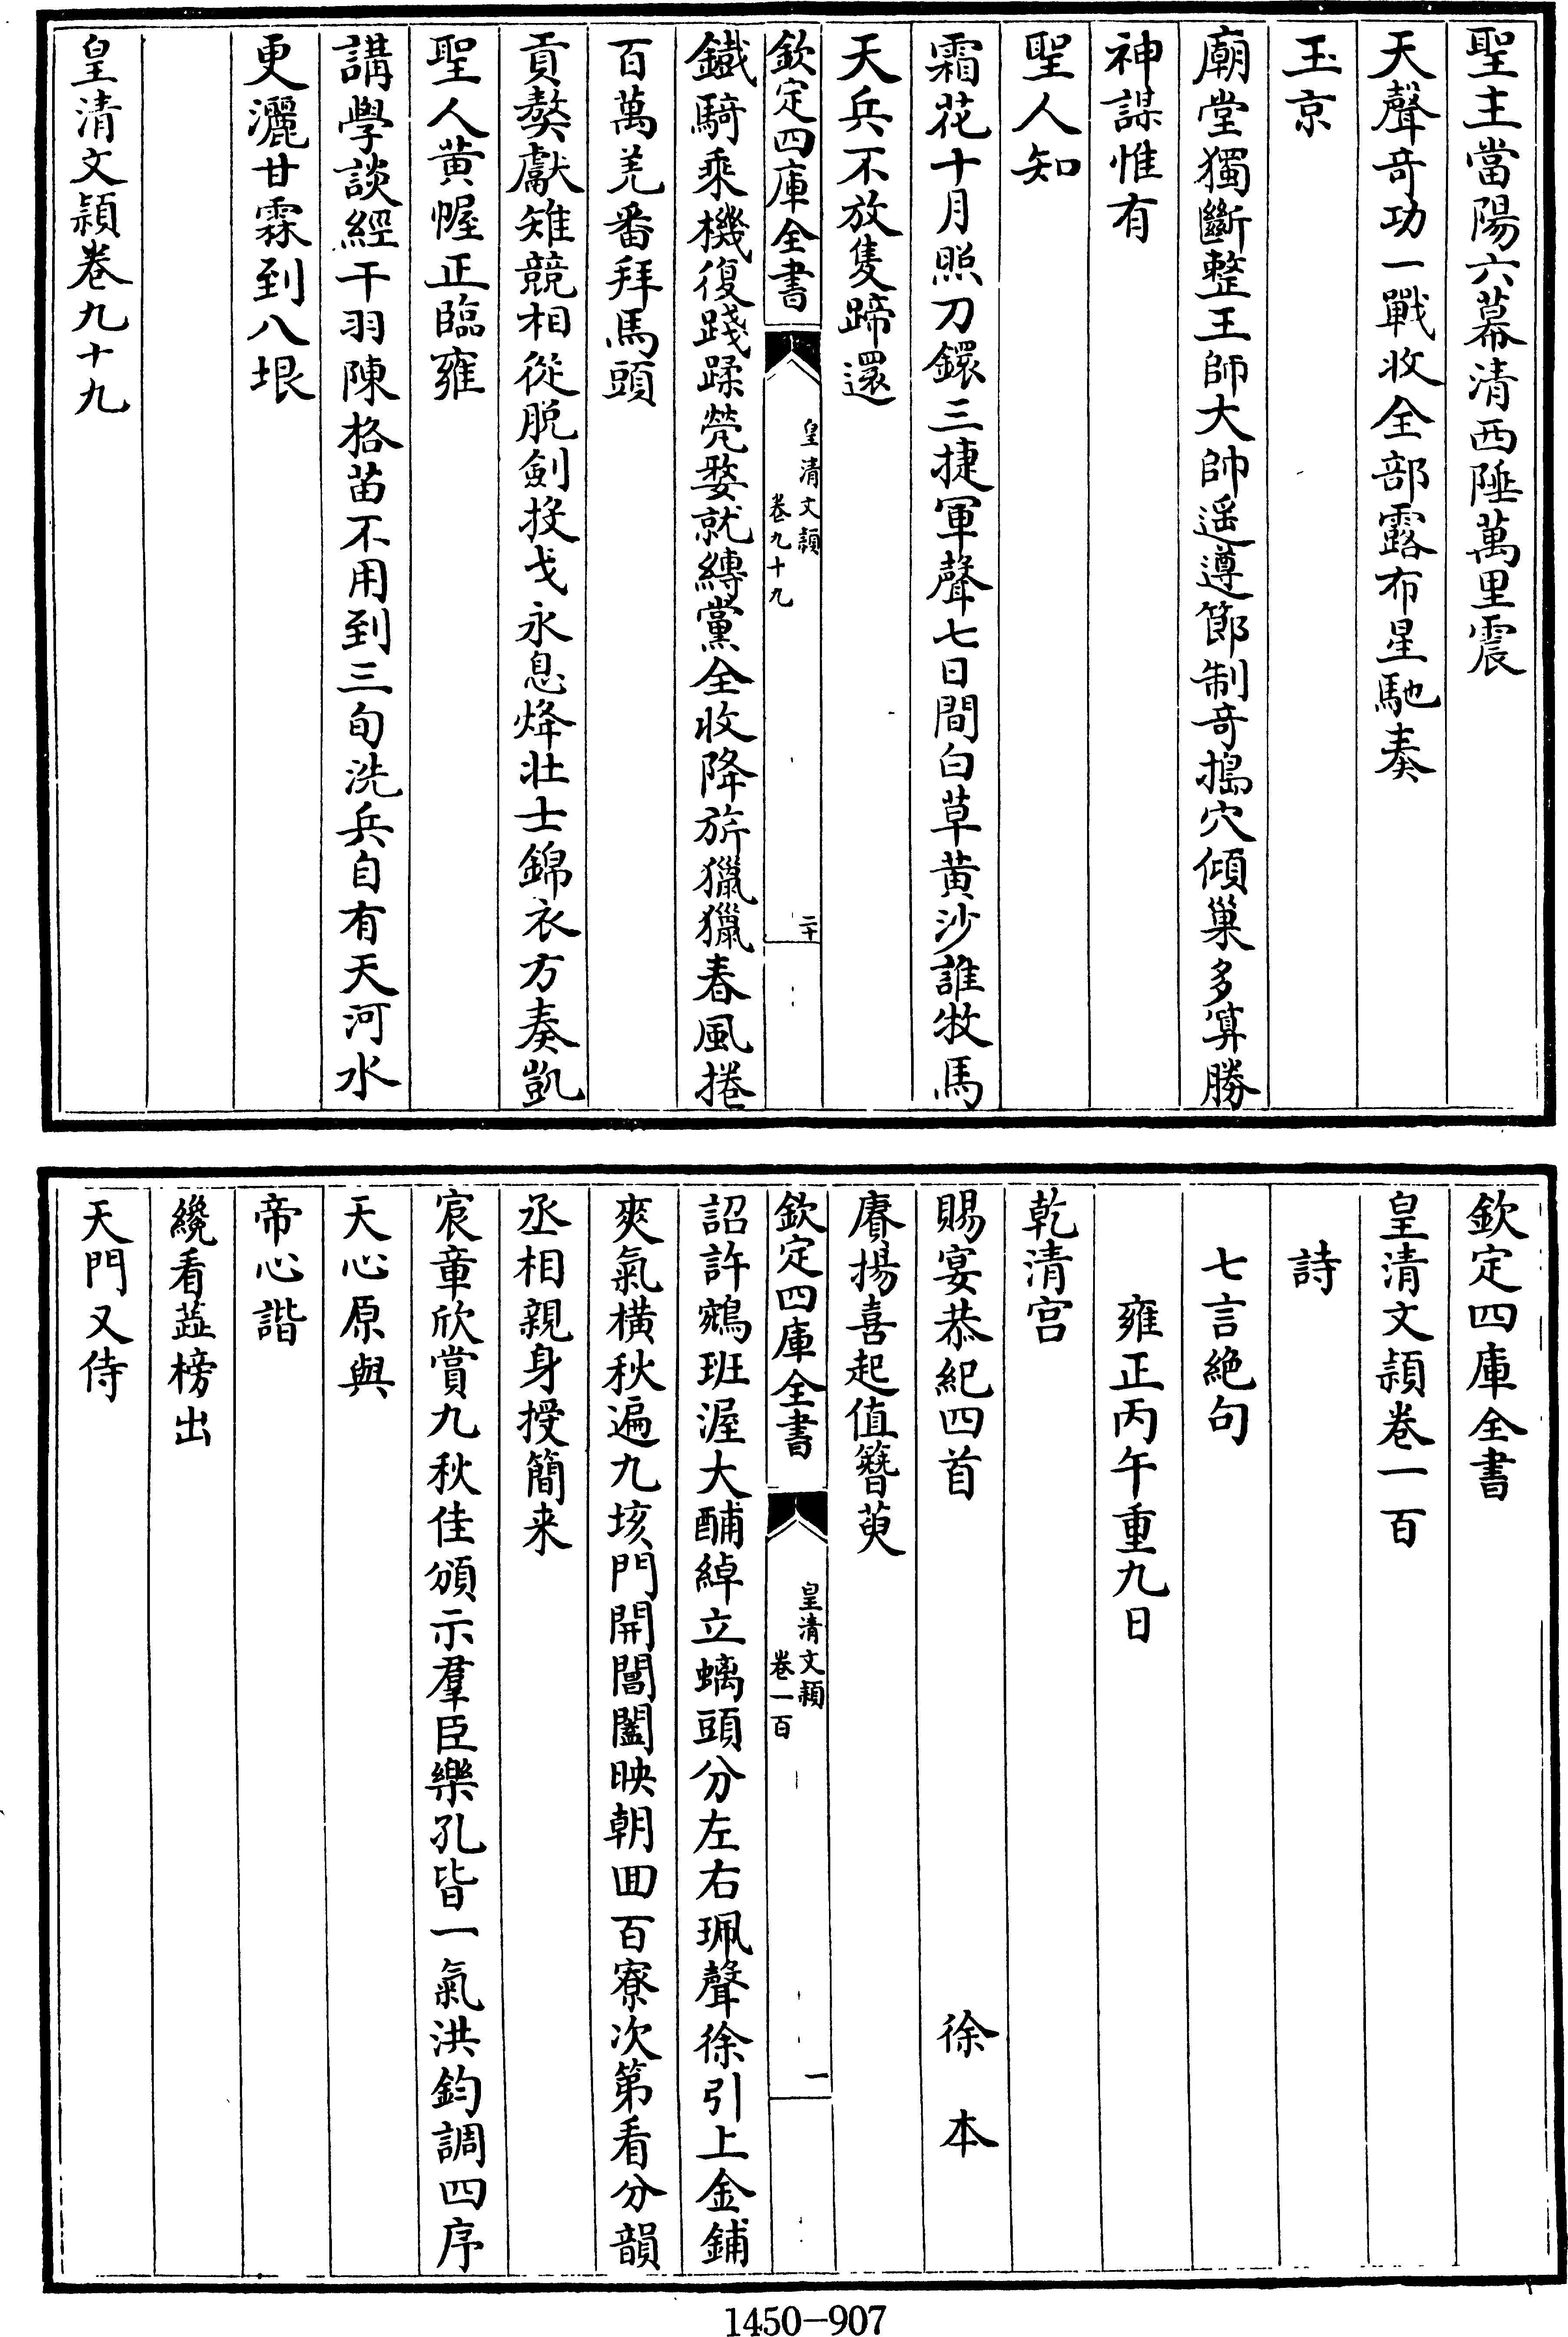 聖主當陽六幕清西陲萬里震
天聲奇功一戰收全部露布星馳奏
玉京
廟堂獨斷整王師大帥遥遵節制奇搗穴傾巢多算勝
神謀惟有
聖人知
霜花十月照刀鐶三捷軍聲七日間白草黄沙誰牧馬
天兵不放隻蹄還
欽定四庫全書
皇清文穎
卷九十九
二十
鐵騎乘機復踐蹂煢婺就縛黨全收降旂獵獵春風捲
百萬羌番拜馬頭
貢獒獻雉競相從脱劍投戈永息烽壯士錦衣方奏凱
聖人黄幄正臨雍
講學談經干羽陳格苗不用到三旬洗兵自有天河水
更灑甘霖到八垠
皇清文穎卷九十九
欽定四庫全書
皇清文穎卷一百
詩
七言絶句
雍正丙午重九日
乾清宫
賜宴恭紀四首 徐本
賡揚喜起值簪萸
欽定四庫全書
皇清文穎
卷一百
一
詔許鵷班渥大酺綽立螭頭分左右珮聲徐引上金鋪
爽氣横秋遍九垓門開閶闔映朝回百寮次第看分韻
丞相親身授簡来
宸章欣賞九秋佳頒示羣臣樂孔皆一氣洪鈞調四序
天心原與
帝心諧
纔看蕋榜出
天門又侍
1450-907